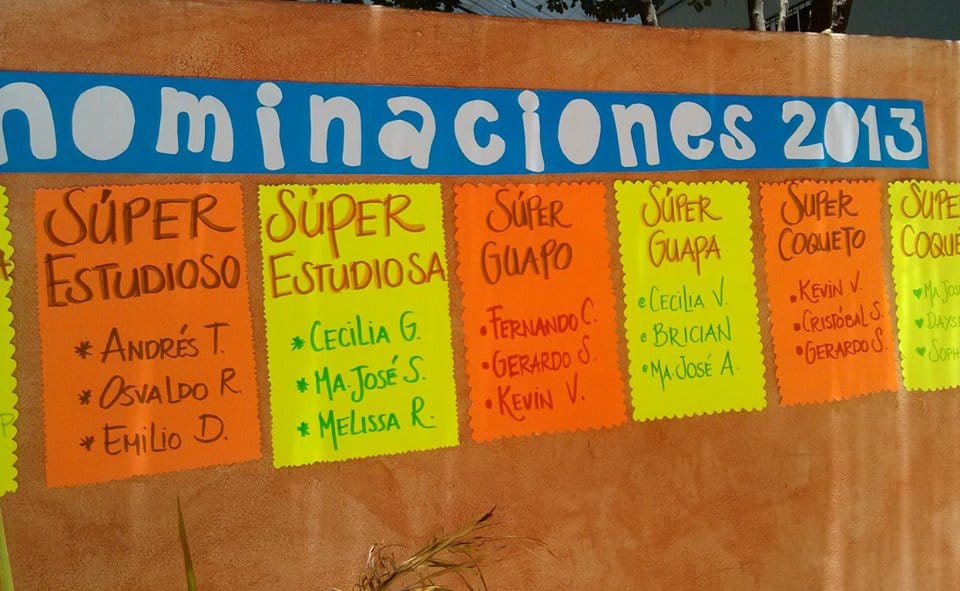 nominaciones 2013
SÚPER
ESTUDIOSO
* ANDRÉS T.
* OSVALDO R.
* EMILIO D.
SÚPER
ESTUDIOSA
* CECILIA G.
* MA. JOSÉ S.
* MELISSA R.
SÚPER
GUAPO
• FERNANDO C.
• GERARDO S.
• KEVIN V.
SÚPER
GUAPA
• CECILIA V.
• BRICIAN
• MA JOSÉ A.
SUPER
COQUETO
• KEVIN V.
• CRISTÓBAL S.
• GERARDO S.
SUPE
COQUE
♥ MA. JOS
♥ DAYS
♥ SOPH